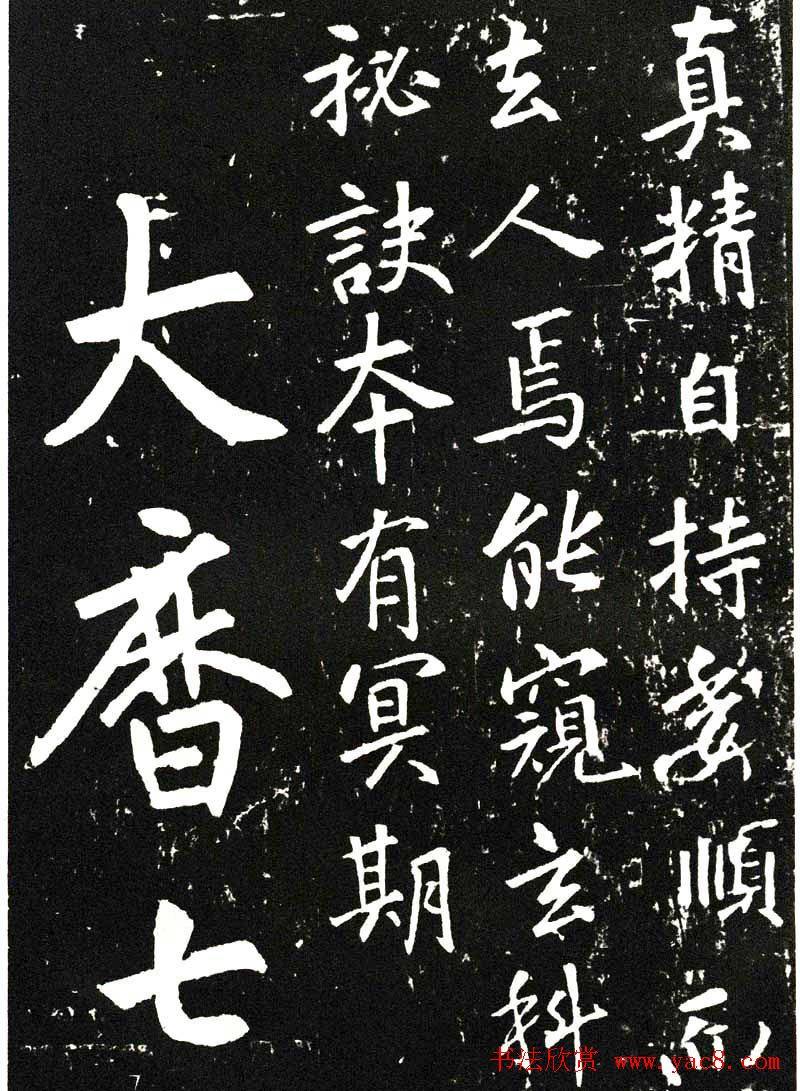 真精自持委順而
去人焉能窺玄科
祕訣本有冥期
大曆七
书法欣赏 www.yac8.com